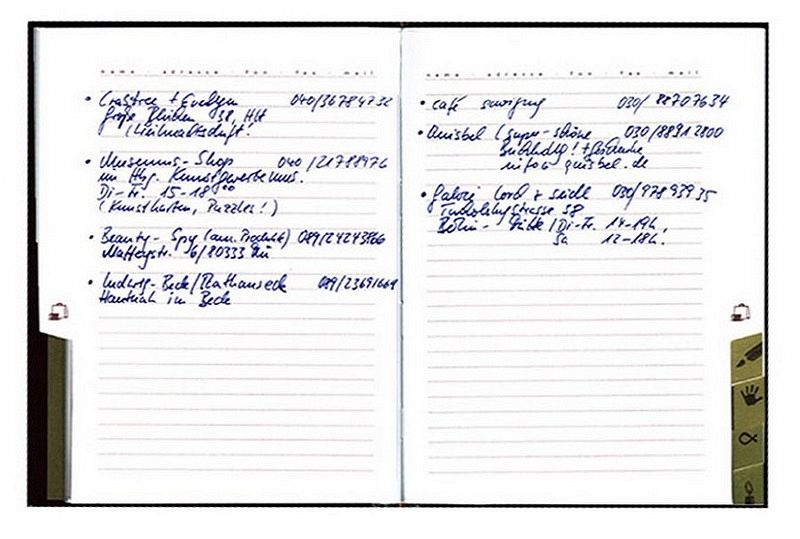 name · adresse · fon · fax · mail
• Crabtree + Evelyn 040/36784732
Große Bleichen 38, HH
• Museums-Shop 040/21788976
im Hbg. Kunstgewerbemus.
Di-Fr. 15-18⁰⁰
(Kunstkarten, Puzzles!)
• Beauty-Spy (am. Produkte) 089/24243866
6/80333 Mü
• Ludwig-Beck/Rathauseck 089/23691664
Hautnah im Beck
name · adresse · fon · fax · mail
• café savigny 030/88707634
• quisbel (super-schöne 030/88912800
info@quisbel.de
• Galerie Lord + Seidl 030/97893935
Tucholskystrasse 38
Berlin - Mitte/Di-Fr. 14-19h,
Sa 12-18h.